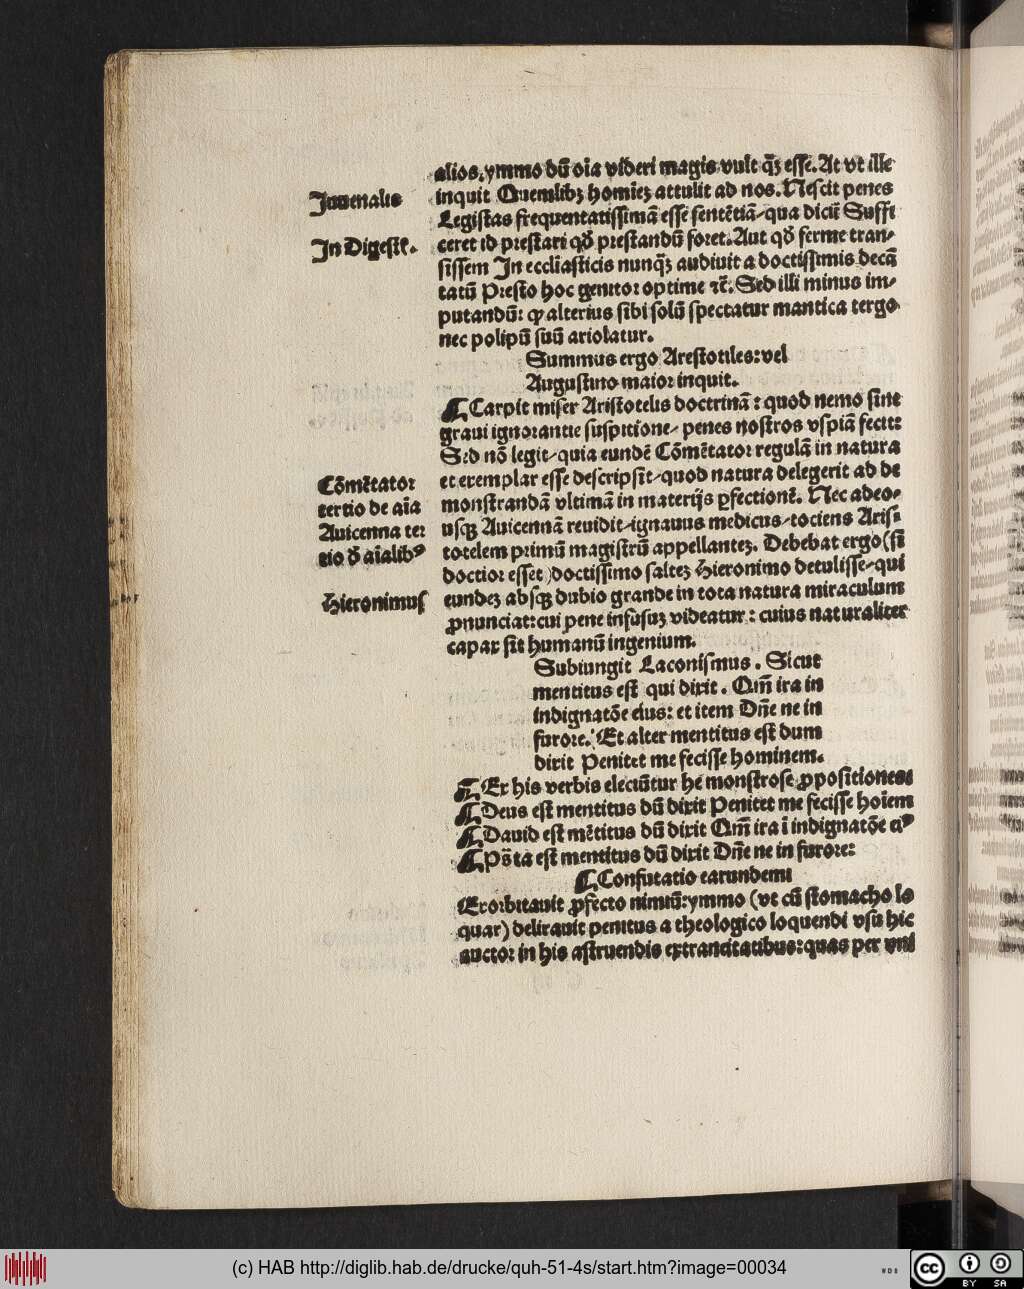 alios. ymmo dū oīa videri magis vult q̄ꝫ esse. At vt ille
Juuenalis
inquit Quemlibꝫ homīeꝫ attulit ad nos. Nescit penes
Legistas frequentatissimā esse sentētiā/ qua dicūt Suffi
In Digestꝭ.
ceret id prestari qd̄ prestandū foret. Aut qd̄ ferme tran/
sissem In eccliasticis nunq̄ꝫ audiuit a doctissimis decā
tatū Presto hoc genitor optime ⁊c̄. Sed illi minus im/
putandū: ꝙ alterius sibi solū spectatur mantica tergo
nec polipū suū ariolatur.
Summus ergo Arestotiles: vel
Augustino maior inquit.
¶ Carpit miser Aristotelis doctrinā: quod nemo sine
graui ignorantie suspitione/ penes nostros vspiā fecit:
Sed nō legit/ quia eundē Cōmētator regulā in natura
Cōmētator
et exemplar esse descripsit/ quod natura delegerit ad de
tertio de aīa
monstrandā vltimā in materijs ꝑfectionē. Nec adeo/
Auicenna ter
usqꝫ Auicennā reuidit/ ignauus medicus/ tociens Aris/
tio d̄ aīalibꝰ
totelem primū magistrū appellanteꝫ. Debebat ergo (si
doctior esset) doctissimo salteꝫ Hieronimo detulisse/ qui
Hieronimus
eundeꝫ absqꝫ dubio grande in tota natura miraculum
ꝓnunciat: cui pene infusuꝫ videatur: cuius naturaliter
capax sit humanū ingenium.
Subiungit Laconismus. Sicut
mentitus est qui dixit. Qm̄ ira in
indignatōe eius: et item Dn̄e ne in
furore. Et alter mentitus est dum
dixit Penitet me fecisse hominem.
¶ Ex his verbis eleciūtur he monstrose ꝓpositiones:
¶ Deus est mentitus dū dixit Penitet me fecisse hoīem
¶ Dauid est mētitus dū dixit Qm̄ ira ī indignatōe eiꝰ
¶ Ps̄ta est mentitus dū dixit Dn̄e ne in furore:
¶ Confutatio earundem
Exorbitauit ꝓfecto nimiū: ymmo (vt cū stomacho lo
quar) delirauit penitus a theologico loquendi vsu hic
auctor in his astruendis extraneitatibus: quas per vni
(c) HAB http://diglib.hab.de/drucke/quh-51-4s/start.htm?image=00034
cc BY SA